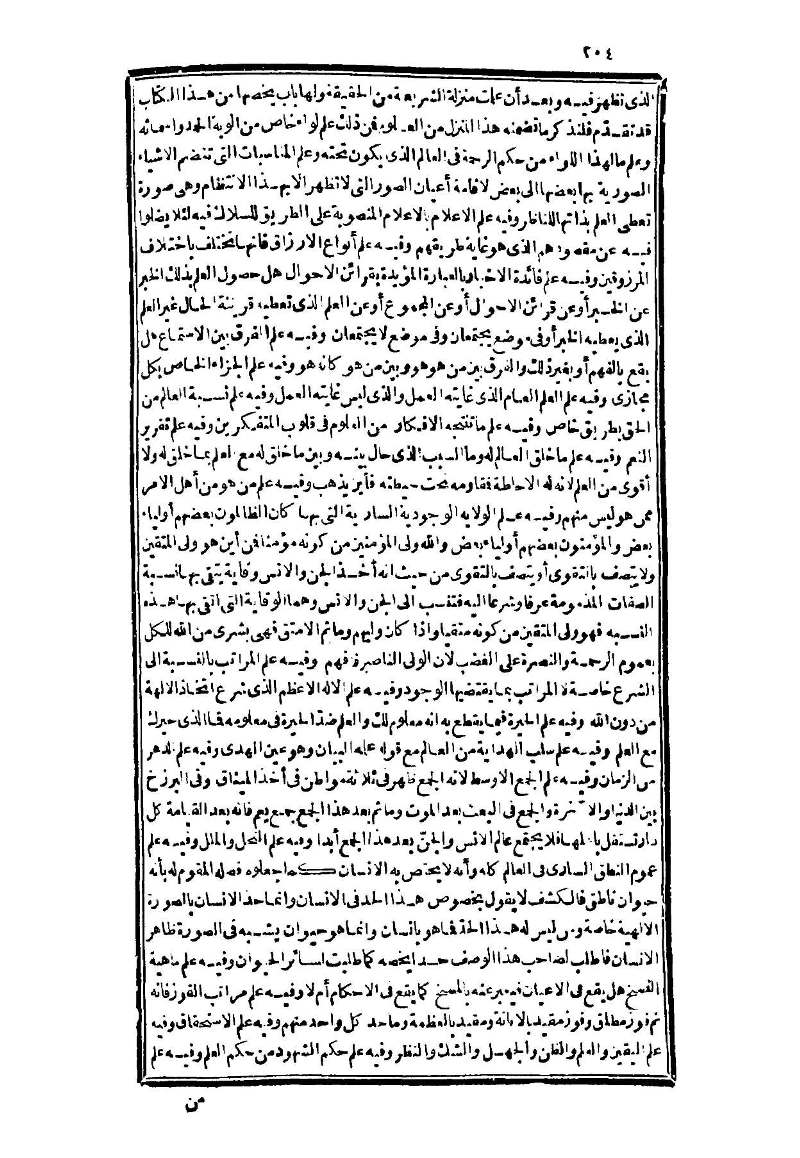 ٢٠٤
الذى تظهر فيه وبعد أن علمت منزلة الشريعة من الحقيقة ولها باب يخصها من هذا الكتاب
قد تقدم فلنذكر ما تضمنه هذا المنزل من العلوم فمن ذلك علم لواء خاص من ألوية الحمد وأسمائه
وعلم ما لهذا اللواء من حكم الرحمة فى العالم الذى يكون تحته وعلم المناسبات التى تنضم الاشياء
الصورية بها بعضها الى بعض لاقامة أعيان الصور التى لا تظهر الا بهذا الانتظام وهى صورة
تعطى العلم بذاتها للناظر وفيه علم الاعلام بالاعلام المنصوبة على الطريق للسلاك فيه لئلا يضلوا
فيه عن مقصودهم الذى هو غاية طريقهم وفيه علم أنواع الارزاق فانها تختلف باختلاف
المرزوقين وفيه علم فائدة الاخبار بالعبارة المؤيدة بقرائن الاحوال هل حصول العلم بذلك الخبر
عن الخبر أو عن قرائن الاحوال أو عن المجموع أو عن العلم الذى تعطيه قرينة الحال غير العلم
الذى يعطيه الخبر أو فى موضع يجتمعان وفى موضع لا يجتمعان وفيه علم الفرق بين الاستماع هل
يقع بالفهم أو بغير ذلك والفرق بين من هو هو وبين من هو كانه هو وفيه علم الجزاء الخاص بكل
مجازى وفيه علم العلم العام الذى غايته العمل والذى ليس غايته العمل وفيه علم نسبة العالم من
الحق بطريق خاص وفيه علم ما تنتجه الافكار من العلوم فى قلوب المتفكرين وفيه علم تقرير
النعم وفيه علم ما خلق العالم له وما السبب الذى حال بينه وبين ما خلق له مع العلم بما خلق له ولا
أقوى من العلم لانه له الاحاطة فمقاومه تحت حيطته فأين يذهب وفيه علم من هو من أهل الامر
ممن هو ليس منهم وفيه علم الولاية الوجودية السارية التى بها كان الظالمون بعضهم أولياء
بعض والمؤمنون بعضهم أولياء بعض والله ولى المؤمنين من كونه مؤمنا فمن أين هو ولى المتقين
ولا يتصف بالتقوى أو يتصف بالتقوى من حيث انه أخذ الجن والانس وقاية يتقى بها نسبة
الصفات المذمومة عرفا وشرعا اليه فتنسب الى الجن والانس وهما الوقاية التى اتقى بها هذه
النسبة فهو ولى المتقين من كونه متقيا واذا كان وليهم وما ثم الا متق فهى بشرى من الله للكل
بعموم الرحمة والنصرة على الغضب لان الولى الناصر فافهم وفيه علم المراتب بالنسبة الى
الشرع خاصة لا المراتب بما يقتضيها الوجود وفيه علم الاله الاعظم الذى شرع اتخاذ الالهة
من دون الله وفيه علم الحيرة فيما يقطع به انه معلوم لك والعلم ضد الحيرة فى معلومه فما الذى حيرك
مع العلم وفيه علم سلب الهداية من العالم مع قوله علمه البيان وهو عين الهدى وفيه علم الدهر
من الزمان وفيه علم الجمع الاوسط لانه الجمع ظهر فى ثلاثة مواطن فى أخذ الميثاق وفى البرزخ
بين الدنيا والآخرة والجمع فى البعث بعد الموت وما ثم بعد هذا الجمع جمع يعم فانه بعد القيامة كل
دار تستقل باهلها فلا يجتمع عالم الانس والجن بعد هذا الجمع أبدا وفيه علم النحل والملل وفيه علم
عموم النطق السارى فى العالم كله وأنه لا يختص به الانسان كما جعلوه فصله المقوم له بأنه
حيوان ناطق فالكشف لا يقول بخصوص هذا الحد فى الانسان وانما حد الانسان بالصورة
الالهية خاصة ومن ليس له هذا الحد فما هو بانسان وانما هو حيوان يشبه فى الصورة ظاهر
الانسان فاطلب لصاحب هذا الوصف حدا يخصه كما طلبت لسائر الحيوان وفيه علم ماهية
الفسخ هل يقع فى الاعيان فيعبر عنه بالمسخ كما يقع فى الاحكام أم لا وفيه علم مراتب الفوز فانه
ثم فوز مطلق وفوز مقيد بالابانة ومقيد بالعظمة وما حد كل واحد منهم وفيه علم الاستحقاق وفيه
علم اليقين والعلم والظن والجهل والشك والنظر وفيه علم حكم الشهود من حكم العلم وفيه علم
من